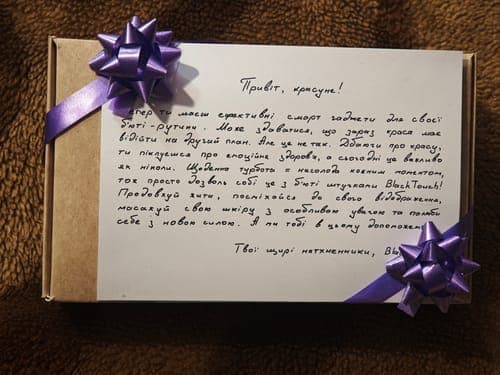 Привіт, красуне!
тепер ти маєш ефективні смарт гаджети для своєї
б'юті-рутини. Може здаватися, що зараз краса має
відійти на другий план. Але це не так. Дбаючи про красу,
ти піклуєшся про емоційне здоров'я, а сьогодні це важливо
як ніколи. Щоденна турбота = насолода кожним моментом,
тож просто дозволь собі це з б'юті штучками BlackTouch!
Продовжуй жити, посміхайся до свого відображення,
масажуй свою шкіру з особливою увагою та полюби
себе з новою силою. А ми тобі в цьому допоможемо
Твої щирі натхненники,